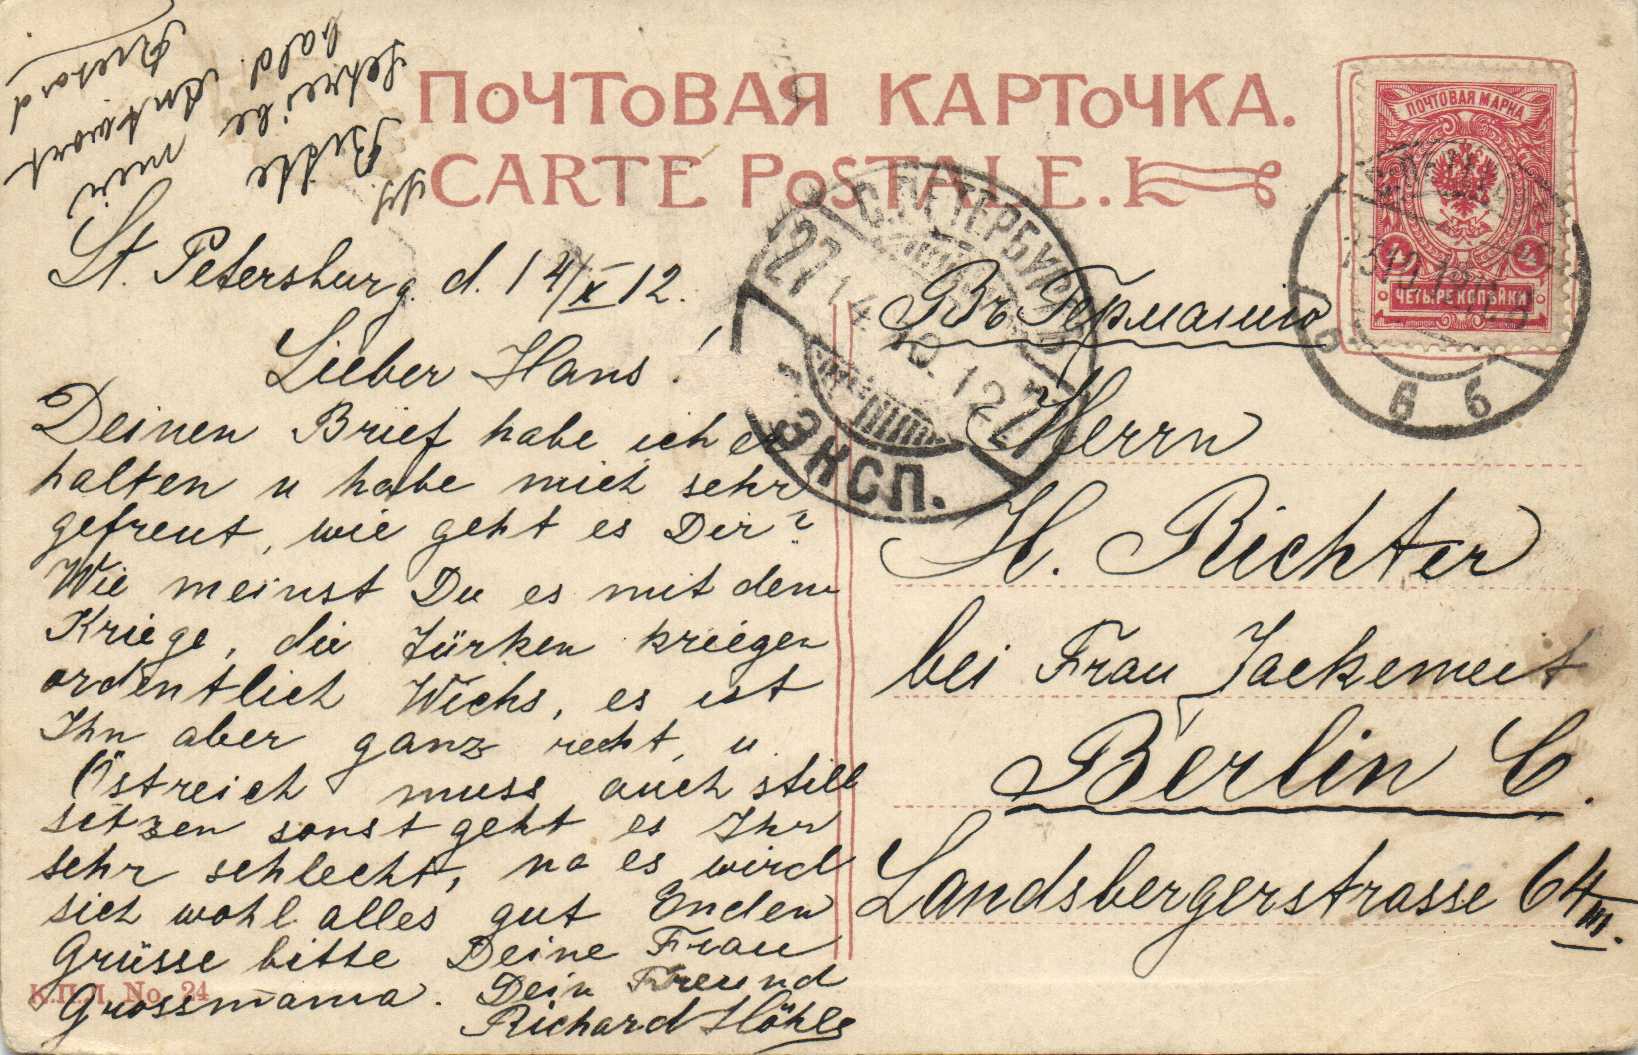 ПОЧТОВАЯ КАРТОЧКА.
CARTE POSTALE.
St. Petersburg. d. 14/X 12.
Lieber Hans!
Deinen Brief habe ich er
halten u habe mich sehr
gefreut, wie geht es Dir?
Wie meinst Du es mit dem
Kriege, die Türken kriegen
ordentlich Wichs, es ist
Ihn aber ganz recht, u.
Östreich muss auch still
sitzen sonst geht es Ihr
sehr schlecht, na es wird
sich wohl alles gut Enden
Grüsse bitte Deine Frau
Grossmama. Dein Freund
Richard Höhle
Bitte
Schreibe
bald.
mein
Antwort
Richard
Въ Германiю
Herrn
H. Richter
bei Frau Jackemeit
Berlin C.
Landsbergerstrasse 64 III.
ПОЧТОВАЯ МАРКА
4 4
ЧЕТЫРЕ КОПѢЙКИ
С.ПЕТЕРБУРГ
27 14.10.12 27
ЭКСП.
6 6
К.П.И. No. 24